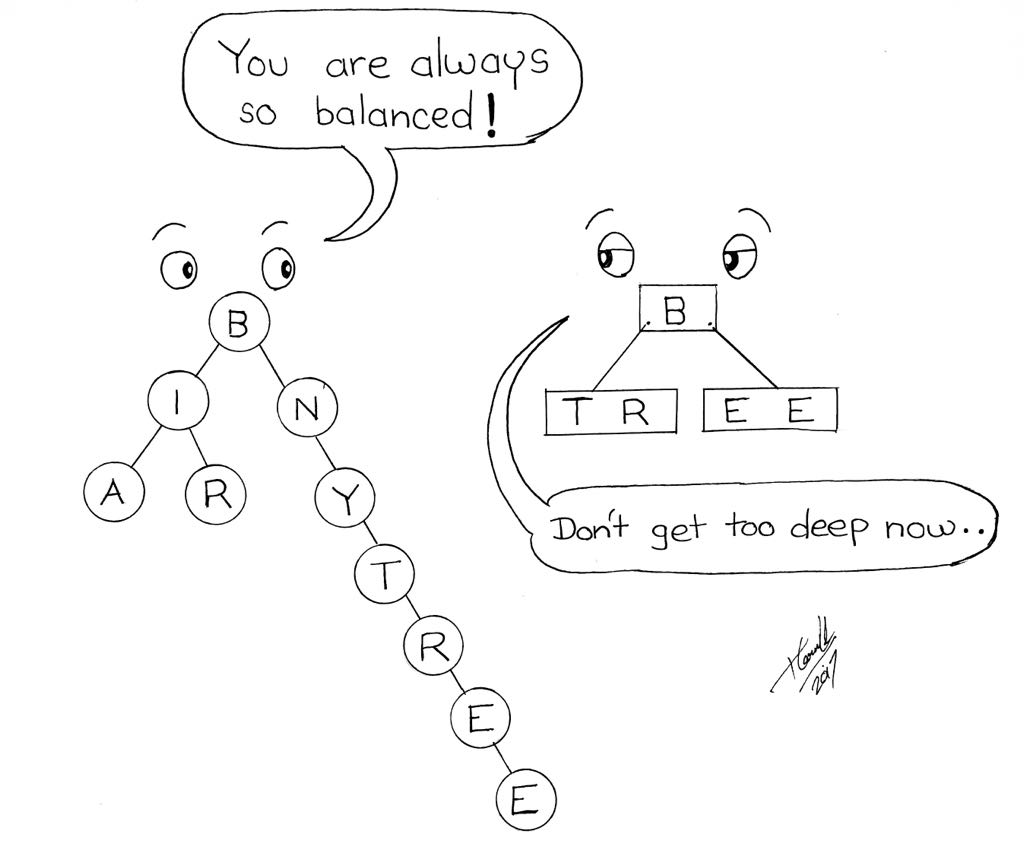 You are always
so balanced!
B
I N
A R Y
T
R
E
E
B
T R E E
Don't get too deep now..
2017